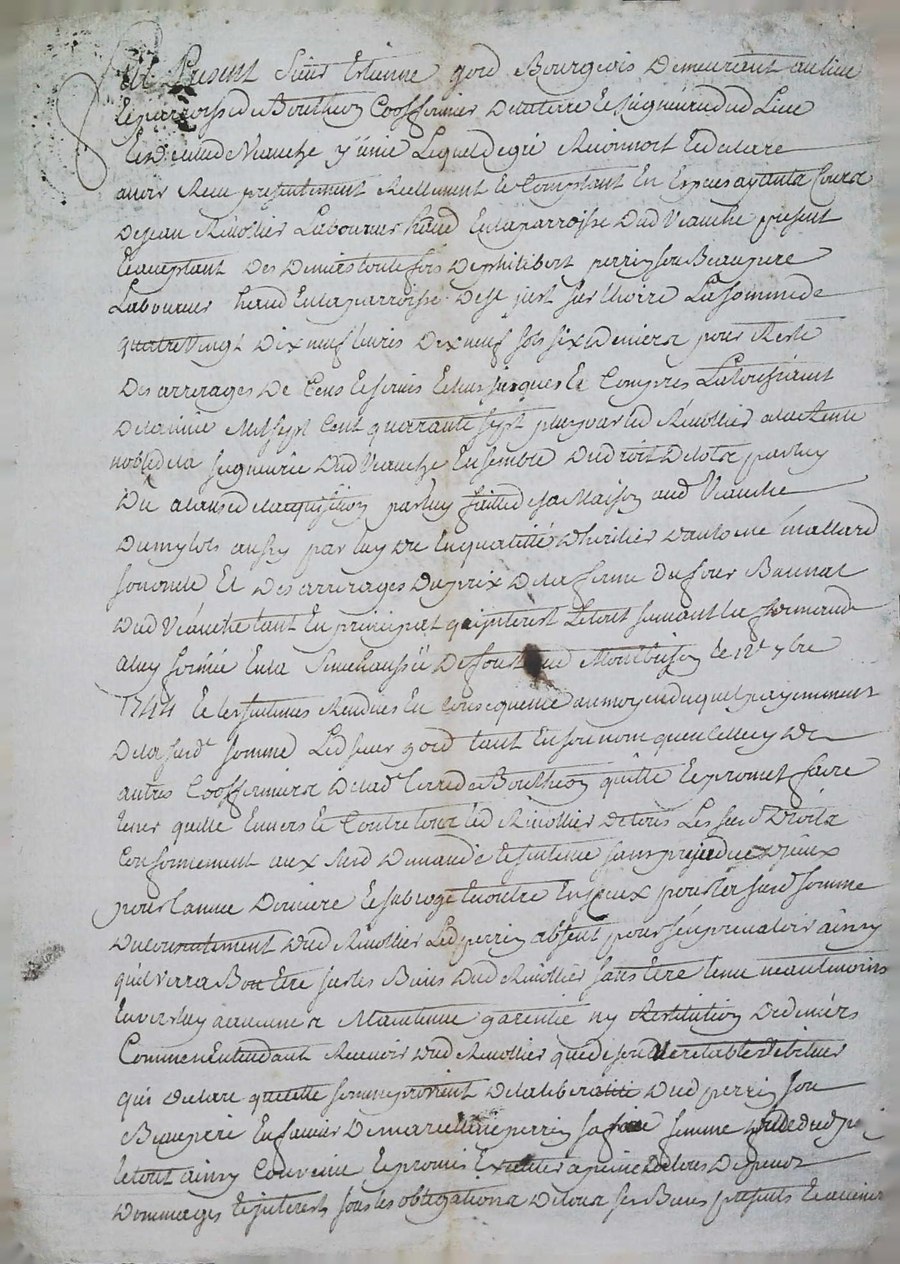 Fut Present Sieur Estienne gord Bourgeois Demeurant au lieu
Et parroisse de Bouthéon Cooffermier De la terre et seigneurie dud Lieu
Et De celle de Veauche y unie Lequel de gré Reconnoit et declare
avoir Receu presentement Reellement et Comptant En Especes ayant a Cours
De jean Rivollier Laboureur hand En la parroisse Dud Veauche present
Et acceptant Des Deniers toutefois De philibert perrin son Beaupere
Laboureur hand En la parroisse De st just sur Loire La somme de
quatre Vingt Dix neuf livres Dix neuf sols six Deniers pour Reste
Des arrerages De Cens Et servis Echus jusques Et Compris La st
De l'année Mil sept Cent quarante sept par led Rivollier a la Rente
noble de la seigneurie Dud Veauche Ensemble Du droit De lots par luy
Du a cause de l'acquisition par luy faitte de sa Maison aud Veauche
Du mylots aussy par luy du En qualitté d'heritier d'antoine mallard
son oncle Et Des arrerages Du prix De la ferme du four Bannal
Dud Veauche tant En principal qu'interest Le tout suivant la demande
a luy formée En la Senechaussée De forest Montbrison le 12e 7bre
1744 Et les sentences Rendues En Consequence au moyen du quel payemment
De la susd. somme Led sieur gord tant En son nom qu'en celluy de
autres Cooffermiers De lad. terre de Bouthéon quitte Et promet faire
tenir quitte Envers Et Contre tous led Rivollier De tous Les susd. Droits
Conformement aux susd Demande et sentence sans prejudice
pour l'année Derniere Et subroge pour la susd. somme
Du consentement Dud Rivollier Led perrin absent pour s'en prevaloir ainsy
qu'il Verra Bon Etre sur les Biens Dud Rivollier sans Etre tenu neantmoins
Envers luy a aucune Maintenue garentie ny Restitution De deniers
Comme n'Entendant Recevoir Dud Rivollier que de son Veritable debiteur
qui declare que telle somme provient De la liberalité Dud perrin son
Beaupere En faveur De marcelline perrin sa femme fille dud
le tout ainsy Convenu Et promis Executer a peine De tous Depens
Dommages Et interests sous les obligations De tous ses Biens presents Et avenir